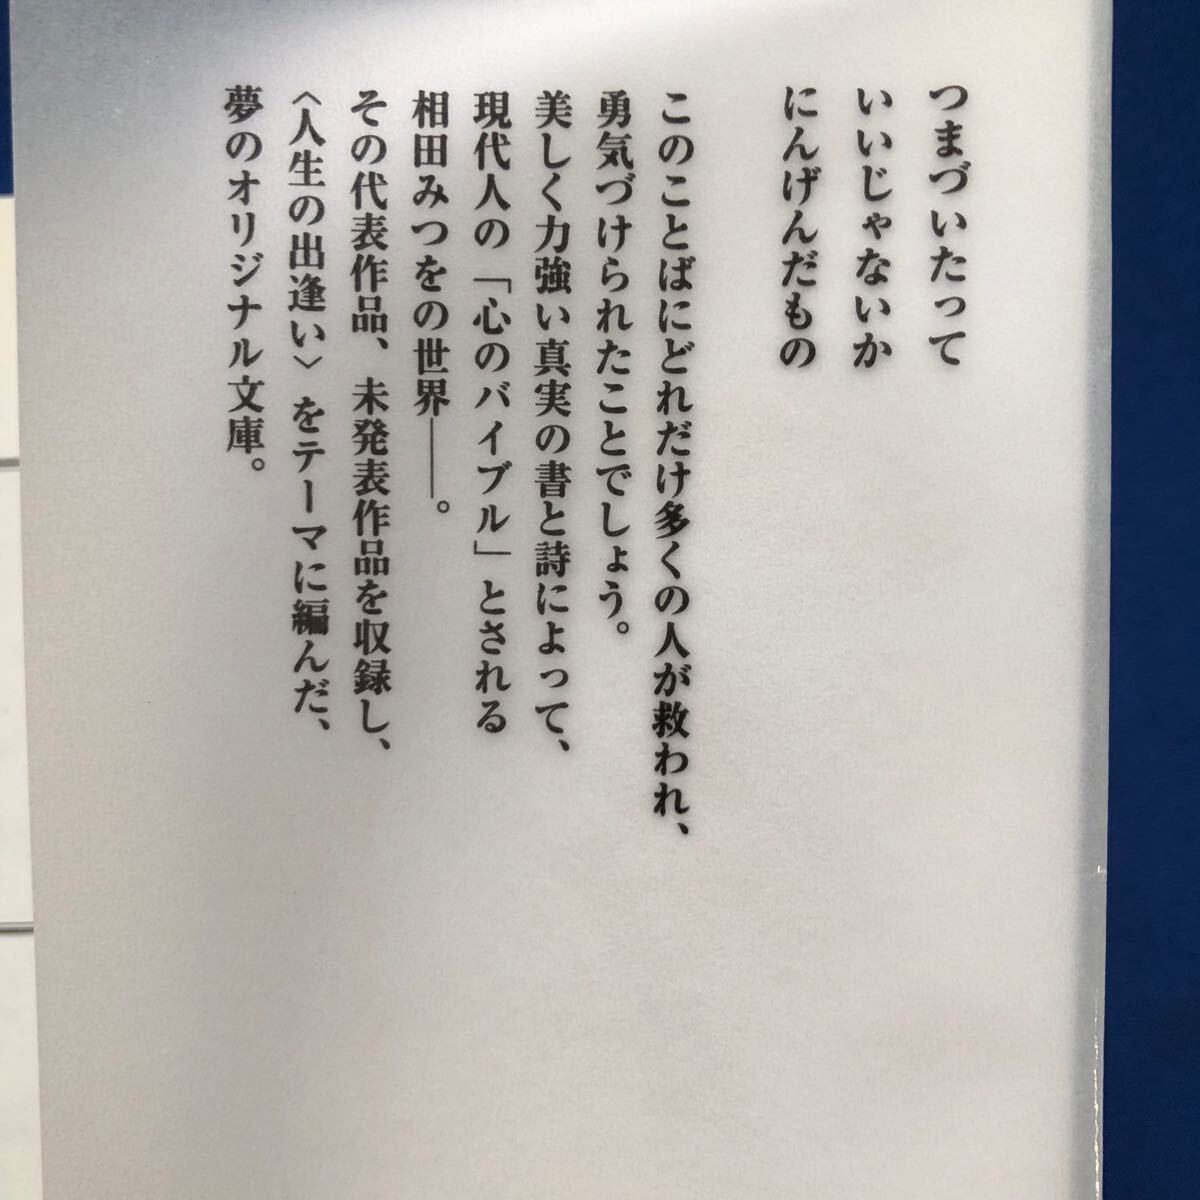 つまづいたって
いいじゃないか
にんげんだもの
このことばにどれだけ多くの人が救われ、
勇気づけられたことでしょう。
美しく力強い真実の書と詩によって、
現代人の「心のバイブル」とされる
相田みつをの世界――。
その代表作品、未発表作品を収録し、
〈人生の出逢い〉をテーマに編んだ、
夢のオリジナル文庫。